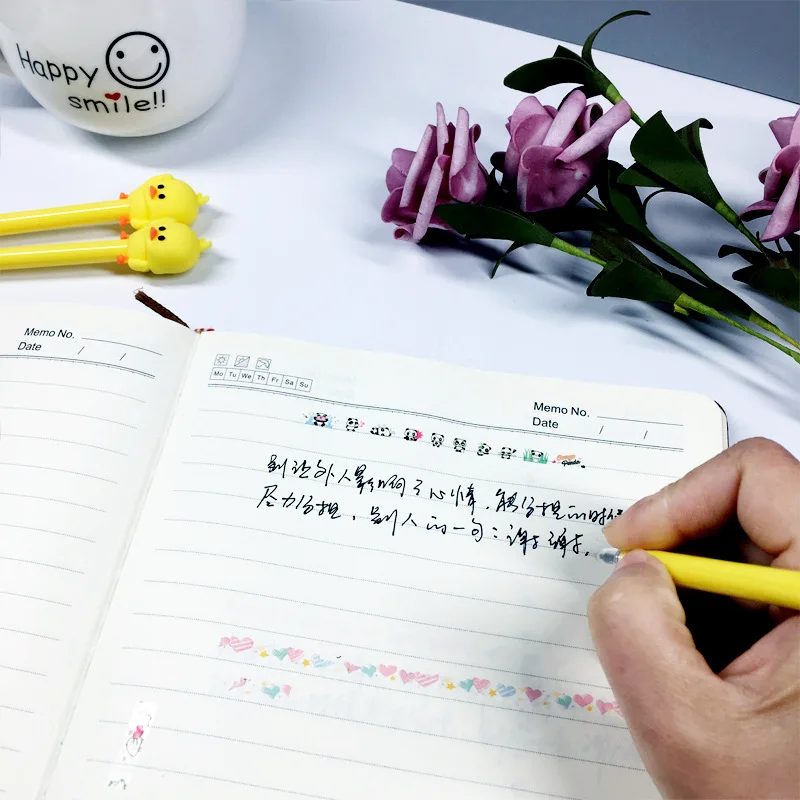 Happy
smile!!
Memo No.
Date / /
Mo Tu We Th Fr Sa Su
Memo No.
Date / /
别让外人影响了心情,能分担的时候
尽力分担,别人的一句:谢谢,